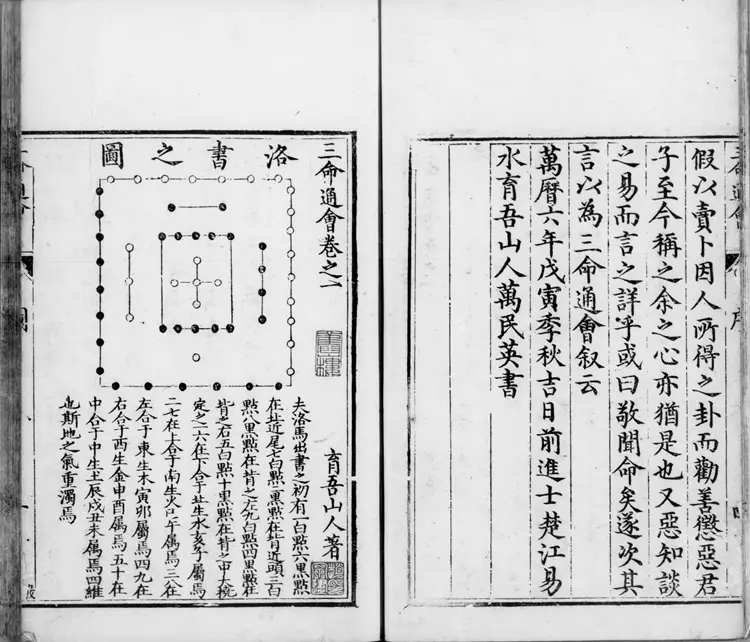 假以賣卜因人所得之卦而勸善懲惡君
子至今稱之余之心亦猶是也又惡知談
之易而言之詳乎或曰敬聞命矣遂次其
言以為三命通會叙云
萬曆六年戊寅季秋吉日前進士楚江易
水育吾山人萬民英書
三命通會卷之一
洛書之圖
育吾山人著
夫洛馬出書之初有一白點六黒點
在北近尾七白點二黒點在背近頭三白
點八黒點在背之左九白點四黒點在
背之右五白點十黒點在背之中大撓
定之六在下合于北生水亥子屬焉
二七在上合于南生火巳午屬焉三八在
左合于東生木寅卯屬焉四九在
右合于西生金申酉屬焉五十在
中合于中生土辰戌丑未屬焉四維
也斯地之氣重濁焉